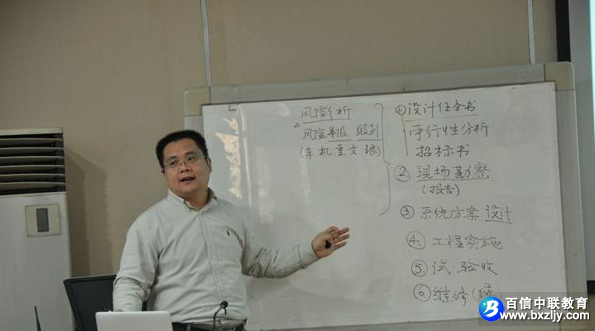 风险分析
风险等级 级别
①设计任务书
可行性分析
招标书
②现场勘察
(报告)
③系统方案设计
④工程实施
⑤试 验收
⑥维修
百信中联教育
www.bxzljy.com